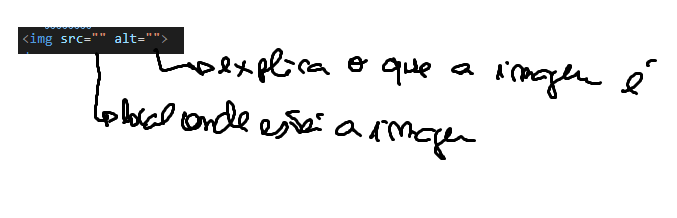 <img src="" alt="">
explica o que a imagem é
local onde está a imagem